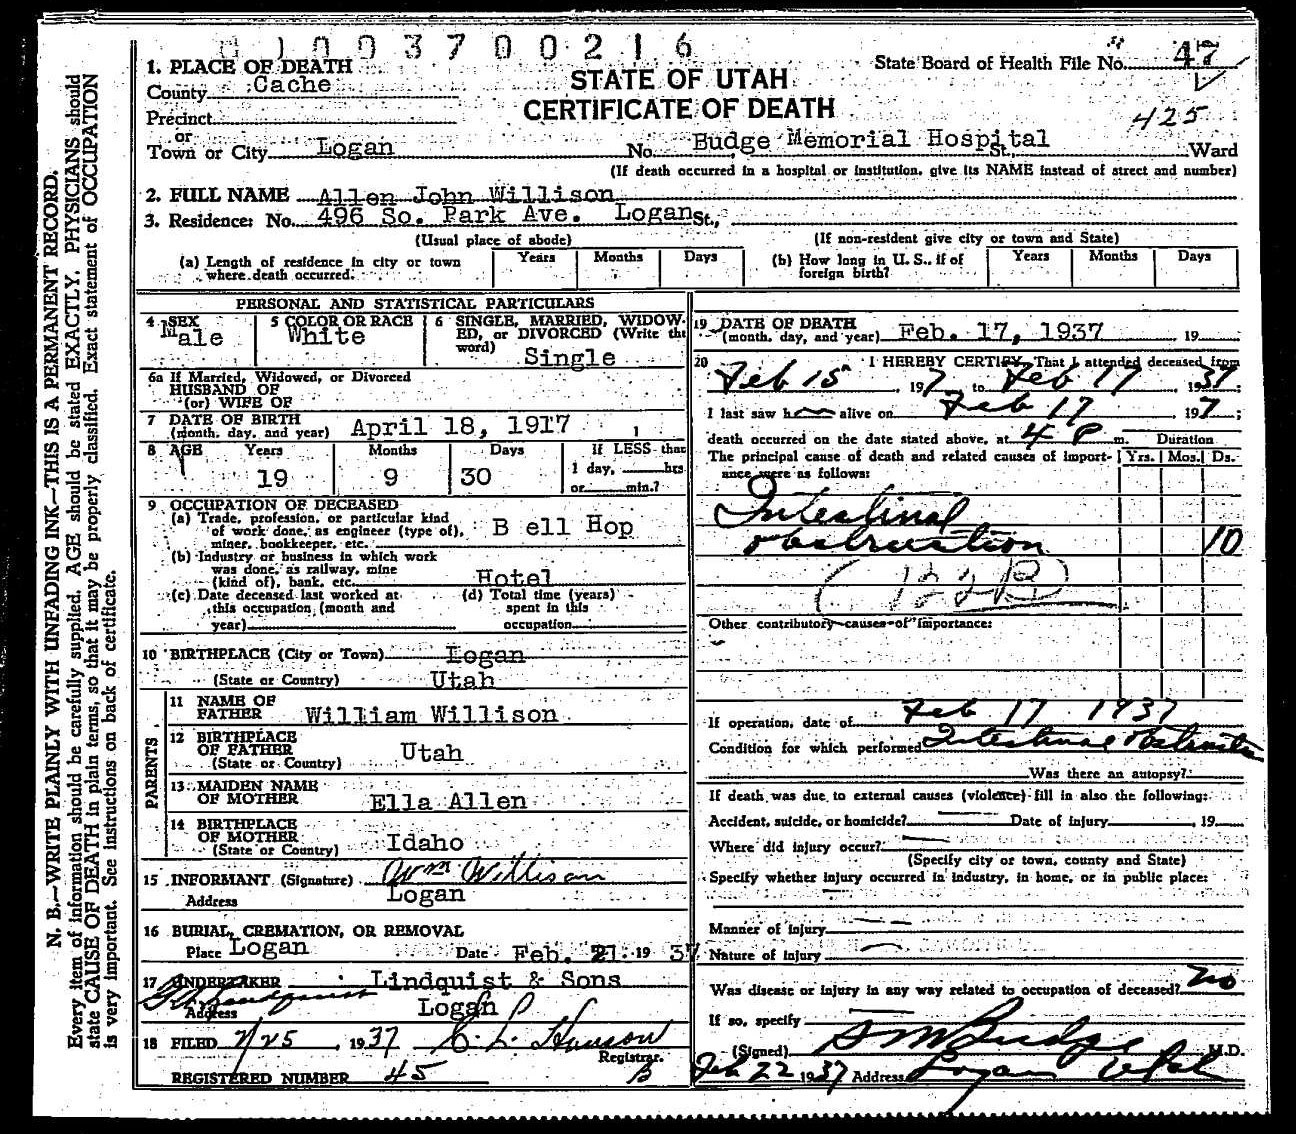 0 1 0 0 3 7 0 0 2 1 6
STATE OF UTAH
CERTIFICATE OF DEATH
State Board of Health File No. 47
425
1. PLACE OF DEATH
County Cache
Precinct
or
Town or City Logan No. Budge Memorial Hospital St., Ward
(If death occurred in a hospital or institution, give its NAME instead of street and number)
2. FULL NAME Allen John Willison
3. Residence: No. 496 So. Park Ave. Logan St.,
(Usual place of abode) (If non-resident give city or town and State)
(a) Length of residence in city or town where death occurred. Years Months Days
(b) How long in U. S., if of foreign birth? Years Months Days
PERSONAL AND STATISTICAL PARTICULARS
4 SEX Male
5 COLOR OR RACE White
6 SINGLE, MARRIED, WIDOWED, or DIVORCED (Write the word) Single
6a If Married, Widowed, or Divorced
HUSBAND OF
(or) WIFE OF
7 DATE OF BIRTH
(month, day, and year) April 18, 1917
8 AGE Years 19 Months 9 Days 30
If LESS than
1 day, hrs
or min.?
9 OCCUPATION OF DECEASED
(a) Trade, profession, or particular kind
of work done, as engineer (type of),
miner, bookkeeper, etc. B ell Hop
(b) Industry or business in which work
was done, as railway, mine
(kind of), bank, etc. Hotel
(c) Date deceased last worked at
this occupation (month and
year)
(d) Total time (years)
spent in this
occupation
10 BIRTHPLACE (City or Town) Logan
(State or Country) Utah
PARENTS
11 NAME OF
FATHER William Willison
12 BIRTHPLACE
OF FATHER
(State or Country) Utah
13 MAIDEN NAME
OF MOTHER Ella Allen
14 BIRTHPLACE
OF MOTHER
(State or Country) Idaho
15 INFORMANT (Signature) Wm Willison
Address Logan
16 BURIAL, CREMATION, OR REMOVAL
Place Logan Date Feb. 21 19 37
17 UNDERTAKER Lindquist & Sons
Address Logan
18 FILED 2/25, 1937 C. L. Hanson
Registrar.
REGISTERED NUMBER 45 B
19 DATE OF DEATH
(month, day, and year) Feb. 17, 1937 19
20 I HEREBY CERTIFY, That I attended deceased from
Feb 15, 1937 to Feb 17 1937;
I last saw h alive on Feb 17, 1937;
death occurred on the date stated above, at 4 P m. Duration
The principal cause of death and related causes of importance were as follows: Yrs. Mos. Ds.
Intestinal
obstruction 10
(122B)
Other contributory causes of importance:
If operation, date of Feb 17 1937
Condition for which performed Intestinal obstruction
Was there an autopsy?
If death was due to external causes (violence) fill in also the following:
Accident, suicide, or homicide? Date of injury, 19
Where did injury occur?
(Specify city or town, county and State)
Specify whether injury occurred in industry, in home, or in public place:
Manner of injury
Nature of injury
Was disease or injury in any way related to occupation of deceased? no
If so, specify
(Signed) S M Budge M.D.
Feb 22 1937 Address Logan Utah
N. B.—WRITE PLAINLY WITH UNFADING INK—THIS IS A PERMANENT RECORD.
Every item of information should be carefully supplied. AGE should be stated EXACTLY. PHYSICIANS should
state CAUSE OF DEATH in plain terms, so that it may be properly classified. Exact statement of OCCUPATION
is very important. See instructions on back of certificate.